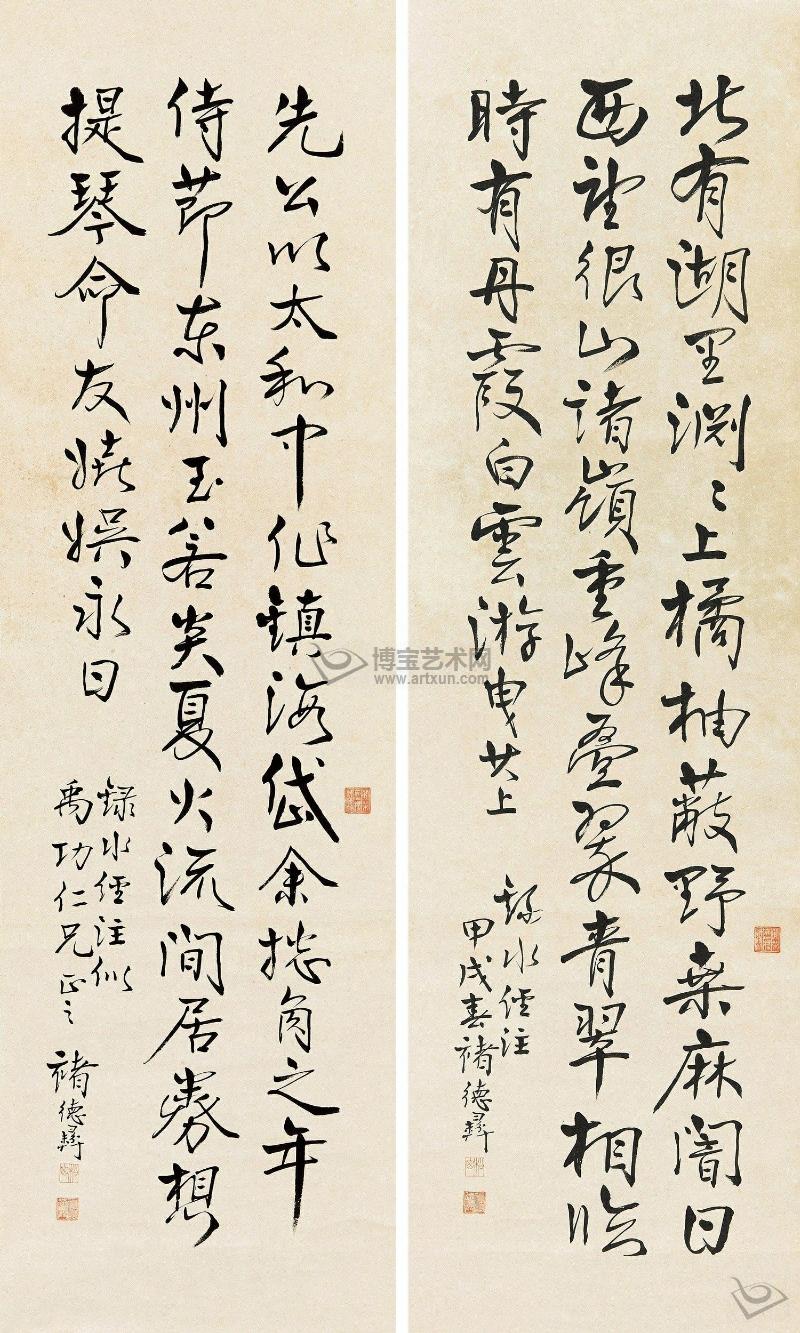 北有湖里渊〻上橘柚蔽野桑麻闇日
西望很山诸嶺重峰叠翠青翠相临
時有丹霞白雲游曳其上
録水經注
甲戌春褚德彝
先公以太和中作镇海岱余揔角之年
侍節东州至若炎夏火流閒居勌想
提琴命友嬉娱永日
録水經注似
禹功仁兄正之
褚德彝
博宝艺术网
www.artxun.com